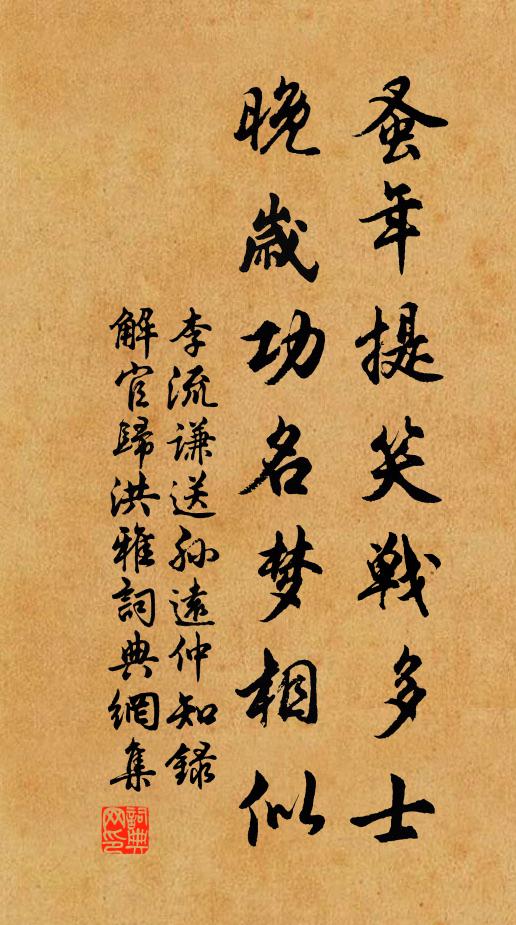 蚤年提笑戰多士
晚歲功名梦相似
李流謙送孙遠仲知録
解官歸洪雅詞典網集
詞典网印